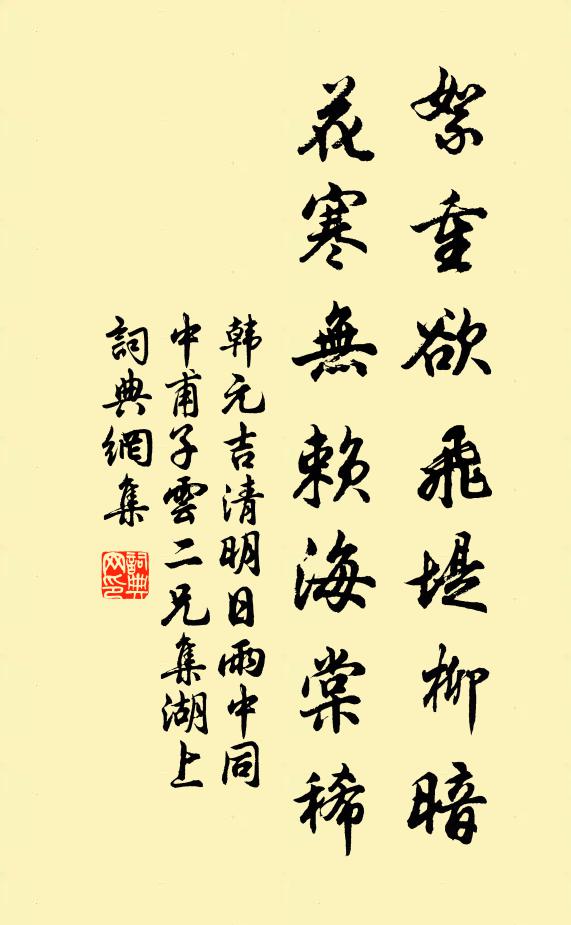 絮重欲飛堤柳暗
花寒無賴海棠稀
韩元吉清明日雨中同
中甫子雲二兄集湖上
詞典網集
詞典网印